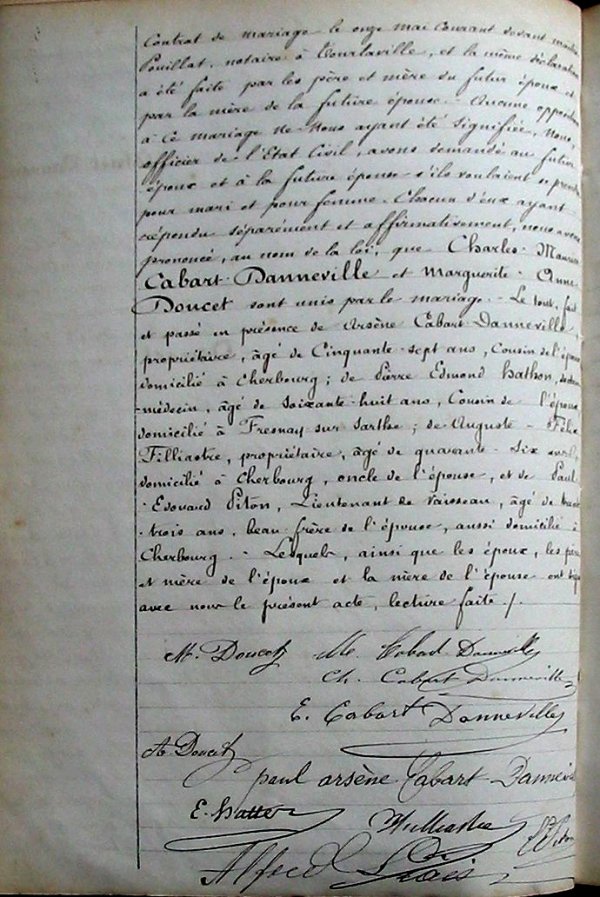 Contrat de mariage le onze mai courant devant
Pouillat, notaire à Tourlaville, et la même déclaration
a été faite par les père et mère du futur époux et
par la mère de la future épouse. - Aucune opposition
à ce mariage ne Nous ayant été signifiée, Nous,
officier de l'Etat Civil, avons demandé au futur
époux et à la future épouse s'ils voulaient se prendre
pour mari et pour femme. Chacun d'eux ayant
répondu séparément et affirmativement, nous avons
prononcé, au nom de la loi, que Charles-Maurice
Cabart-Danneville et Marguerite-Anne
Doucet sont unis par le mariage. - Le tout, fait
et passé en présence de Arsène Cabart-Danneville,
propriétaire, âgé de Cinquante-sept ans, Cousin de l'époux
domicilié à Cherbourg; de Pierre Edmond hatton, docteur
-médecin, âgé de soixante-huit ans, Cousin de l'époux,
domicilié à Fresnay-sur-Sarthe; de Auguste-Félix
Filliastre, propriétaire, âgé de quarante-six ans,
domicilié à Cherbourg, oncle de l'épouse, et de Paul
-Edouard Piton, Lieutenant de Vaisseau, âgé de trente
-trois ans, beau-frère de l'épouse, aussi domicilié à
Cherbourg. - Lesquels, ainsi que les époux, les père
et mère de l'époux et la mère de l'épouse ont signé
avec nous le présent acte, lecture faite ./.
M. Doucet Me Cabart Danneville
Ch. Cabart Danneville
E. Cabart Danneville
A Doucet
paul arsène Cabart Danneville
E. hatton
Filliastre
Piton
Alfred Liais